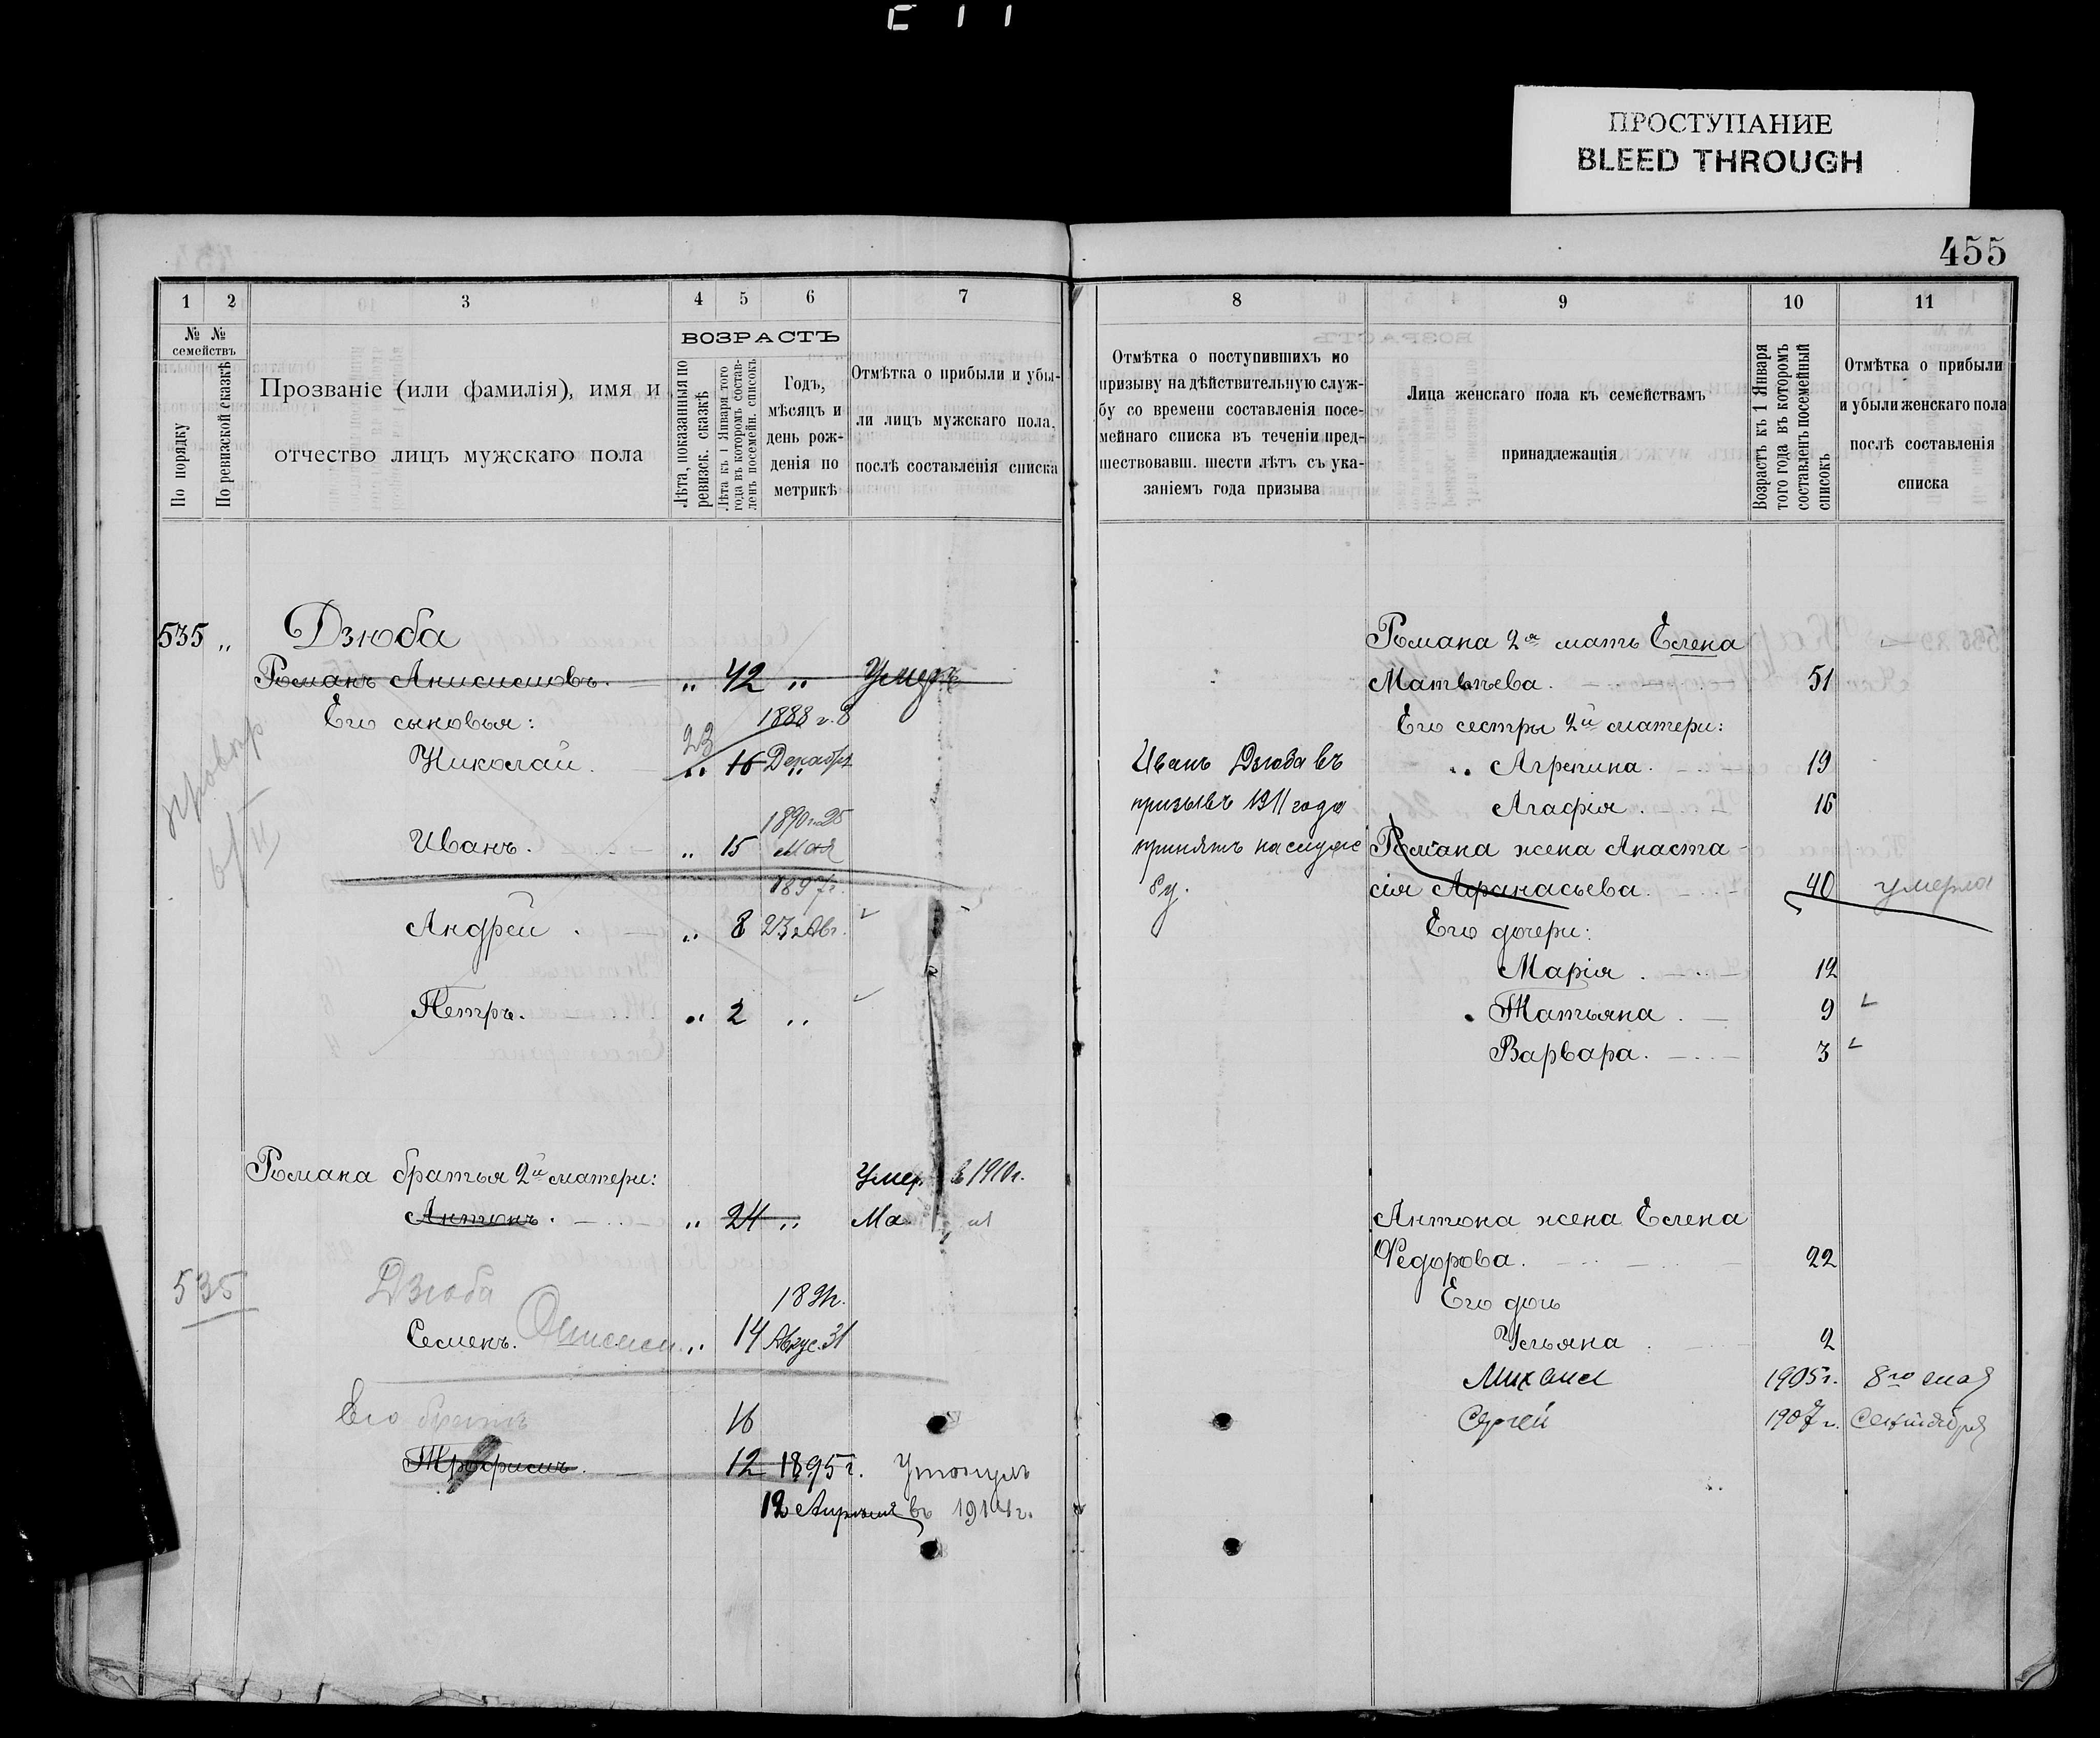 ПРОСТУПАНИЕ
BLEED THROUGH
455
1 2 3 4 5 6 7
№ № семействъ
По порядку
По ревизской сказкѣ
Прозваніе (или фамилія), имя и
отчество лицъ мужскаго пола
ВОЗРАСТЪ
Лѣта, показанныя по
ревизск. сказкѣ
Лѣта къ 1 Января того
года въ которомъ состав-
ленъ посемейн. списокъ
Годъ,
мѣсяцъ и
день рож-
денія по
метрикѣ
Отмѣтка о прибыли и убы-
ли лицъ мужскаго пола,
послѣ составленія списка
535 „ Дзюба
Романъ Анисимовъ. „ 42 „ Умеръ
Его сыновья: 1888 г. 8
23
Николай. „ 16 Декабря
провѣр
6/II
1890 г. 25
Иванъ. „ 15 Мая
1897 г.
Андрей. „ 8 23 Авг.
Петръ. „ 2 „
Романа братья 2й матери: Умер. в 1910 г.
Антонъ. „ 24 „ Ма
535 Дзюба
189 г.
Семенъ. „ 14 Авгус. 31
Его братъ 16
Трофимъ. 12 1895 г. Утонулъ
12 Апрѣля въ 1914 г.
8 9 10 11
Отмѣтка о поступившихъ по
призыву на дѣйствительную служ-
бу со времени составленія посе-
мейнаго списка въ теченіи пред-
шествовавш. шести лѣтъ съ ука-
заніемъ года призыва
Лица женскаго пола къ семействамъ
принадлежащія
Возрастъ къ 1 Января
того года въ которомъ
составленъ посемейный
списокъ
Отмѣтка о прибыли
и убыли женскаго пола
послѣ составленія
списка
Романа 2я мать Елена
Матвѣева. 51
Его сестры 2й матери:
Иванъ Дзюба въ
„ Агрепина. 19
призывъ 1911 года
Агафія. 16
принятъ на служ
бу.
Романа жена Анаста-
сія Афанасьева. 40 умерла
Его дочери:
Марія. 12
Татьяна. 9
Варвара. 3
Антона жена Елена
Федорова. 22
Его дочь
Ульяна 2
Михаил 1905 г. 8го мая
Сергей 1907 г. Сентября